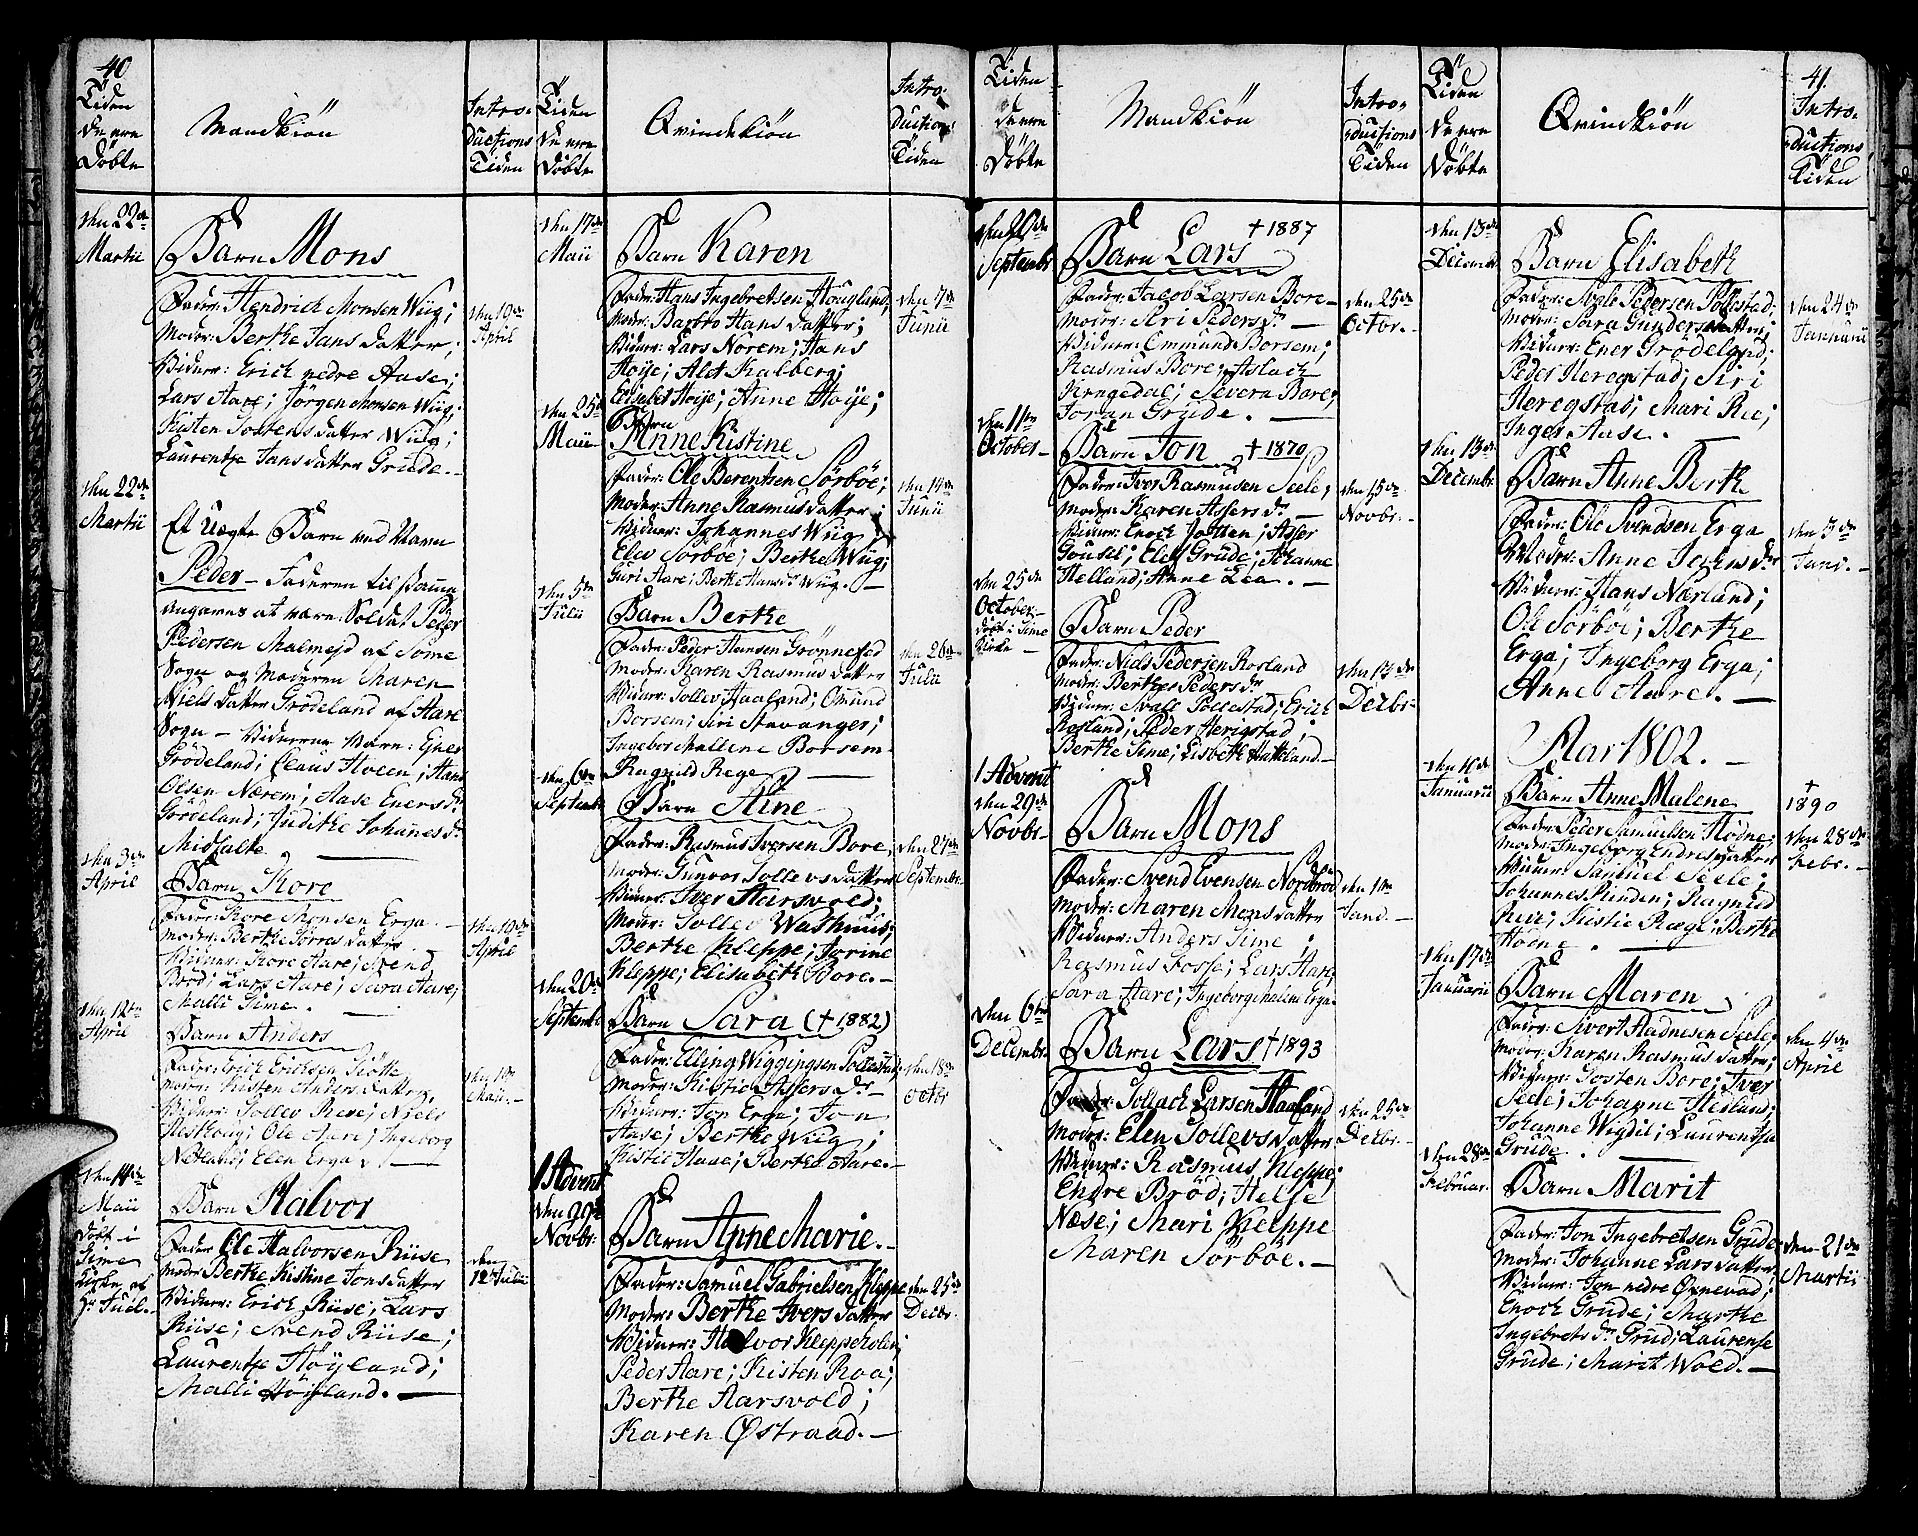 40
Tiden
de ere
Döbte
Mandkiön
Intro-
ductions
Tiden
den 22de
Martii
Barn Mons
Fader: Hendrich Monsen Wiig;
Moder: Berthe Jans datter;
Vidner: Erich nedre Aase;
Lars Aare; Jörgen Monsen Wiig;
Kisten Jostens datter Wiig;
Laurentse Jans datter Grude.-
den 19de
April
den 22de
Martii
Et Uegte Barn ved Navn
Peder - Faderen til
angaves at være: Soldat Peder
Pedersen Malmejd af Somme
Sogn og Moderen Maren
Niels datter Grödeland af Haare
Sogn - Vidnerne Vare: Ener
Grödeland; Claus Hveen; Hans
Olsen Nærem; Aase Eners dr
Grödeland; Judithe Johanes dr
Midfalte.
den 3de
April
Barn Kore
Fader: Kore Monsen Erga.
Moder: Berthe Torres datter
Vidner: Kore Aare; Svend
Bröd; Lars Aare; Sara Aare;
Malli Time.
den 19de
April
den 12te
April
Barn Anders
Fader: Erich Erichsen Siötte
Moder: Kisten Anders datter,
Vidner: Tollev Riese; Niels
Heskoug; Ole Aare; Ingeborg
Netland; Elen Erga.
den 1de
Maii.-
den 14de
Maii
döbt i
Time
Kirke af
Hr Juel.
Barn Halvor
Fader Ole Halvorsen Riise
Moder Berthe Kistine Jons datter
Vidner: Erich Riise; Lars
Riise; Svend Riise;
Laurentse Höyland;
Malli Höiland.
den
12te Julii
Tiden
de ere
Döbte
Qvindekiön
Intro-
ductions
Tiden
den 17de
Maii
Barn Karen
Fader: Hans Ingebretsen Hougland,
Moder: Barbro Hans datter;
Vidner: Lars Norem; Hans
Höije; Alet Kalberg;
Elisabet Hoije; Anne Hoije;
den 7de
Junii
den 25de
Maii
Barn
Anne Kistine
Fader: Ole Berentsen Sörböe;
Moder: Anne Rasmus datter;
Vidner: Johannes Wiig
Elev Sörböe; Berthe Wiig;
Guri Aare; Berthe Hans dr Wiig.
den 14de
Junii
den 5de
Julii
Barn Berthe
Fader: Peder Hansen Grönnestad
Moder: Karen Rasmus datter
Vidner: Tollev Haaland; Omund
Borsem; Siri Stavanger;
Ingebor Mallene Borsem
Ragnild Rege
den 26de
Julii
den 6te
Septembr
Barn Aine
Fader: Rasmus Iversen Bore,
Moder: Gunvor Tollevs datter
Vidner: Iver Aarsvold;
Moder: Tollev Wasthuus;
Berthe Kleppe; Torine
Kleppe; Elisabeth Bore.-
den 27de
Septembr.
den 20de
Septembr
Barn Sara († 1882)
Fader: Elling Wiggingsen Tollestad;
Moder: Kistie Assers dr
Vidner: Jon Erga; Jon
Aase; Berthe Wiig;
Kistie Haae; Berthe Aare.-
den 18de
Octbr
1 Advent
den 29de
Novbr.
Barn Anne Marie.
Fader: Samuel Gabrielsen Kleppe
Moder: Berthe Ivers datter
Vidner: Halvor Kleppeholen;
Peder Aare; Kristen Roa;
Berthe Aarsvold;
Karen Østraad.-
den 25de
Decbr.
Tiden
de ere
Döbte
Mandkiön
Intro-
ductions
Tiden
den 20de
Septembr
Barn Lars † 1887
Fader: Jacob Larsen Bore-
Moder: Siri Peders dr
Vidner: Ommund Borsem;
Rasmus Bore; Aslack
Kongedal; Severa Bore;
Joran Grude.
den 25de
Octbr.-
den 11te
October
Barn Jon † 1870
Fader: Ivor Rasmusen Seele;
Moder: Karen Assers dr
Vidner: Enoch Jotten; Asser
Gousel; Elef Grude; Johanne
Helland; Anne Lea.
den 15de
Novbr.-
den 25de
October-
döbt i Time
Kirke
Barn Peder
Fader: Niels Pedersen Rosland
Moder: Berthe Peders dr
Vidner: Svale Tollestad; Erich
Rosland; Peder Herigstad;
Berthe Time; Lisbeth Hatteland.-
den 13de
Decbr-
1 Advent
den 29de
Novbr.-
Barn Mons
Fader: Svend Evensen Nordbröd
Moder: Maren Mons datter
Vidner: Anders Time
Rasmus Fosse; Lars Aare
Sara Aare; Ingeborg Malene Erga
den 1te
Jand.
den 6te
Decembr.
Barn Lars † 1893
Fader: Tollach Larsen Haaland
Moder: Elen Tollevs datter
Vidner: Rasmus Kleppe;
Endre Bröd; Helje
Næse; Mari Kleppe
Maren Sörböe.-
den 25de
Decbr.-
Tiden
de ere
Döbte
Qvindkiön
41.
Intro-
ductions
Tiden
den 13de
Decembr
Barn Elisabeth
Fader: Svale Pedersen Tollestad;
Moder: Sara Gunders datter;
Vidner: Ener Grödeland;
Peder Heregstad; Siri
Heregstad; Mari Ree;
Inger Aase.
den 24de
Januarii
den 13de
Decembr.
Barn Anne Berthe
Fader: Ole Svendsen Erga
Moder: Anne Jochens dr
Vidner: Hans Nærland;
Ole Sörböe; Berthe
Erga; Ingeborg Erga;
Anne Aare.
den 3de
Janr.-
Aar 1802.
den 10de
Januarii
Barn Anne Malene
Fader: Peder Samuelsen Hodne;
Moder: Ingeborg Endres datter
Vidner: Samuel Seele;
Johannes Rinden; Ragnild
Ree; Kistie Rege; Berthe
Hodne.
†
1890
den 28de
Febr.-
den 17de
Januarii
Barn Maren
Fader: Sivert Hadnesen Seele;
Moder: Karen Rasmus datter;
Vidner: Josten Bore; Iver
Seele; Johanne Hesland;
Johanne Wigdil; Laurentse
Grude.
den 4de
April
den 28de
Februar.
Barn Marit
Fader: Jon Ingebretsen Grude
Moder: Johanne Lars datter
Vidner: Jon nedre Øxnevad;
Enoch Grude; Marthe
Ingebrets dr Grud; Laurense
Grude; Marit Wold.-
den 21de
Martii